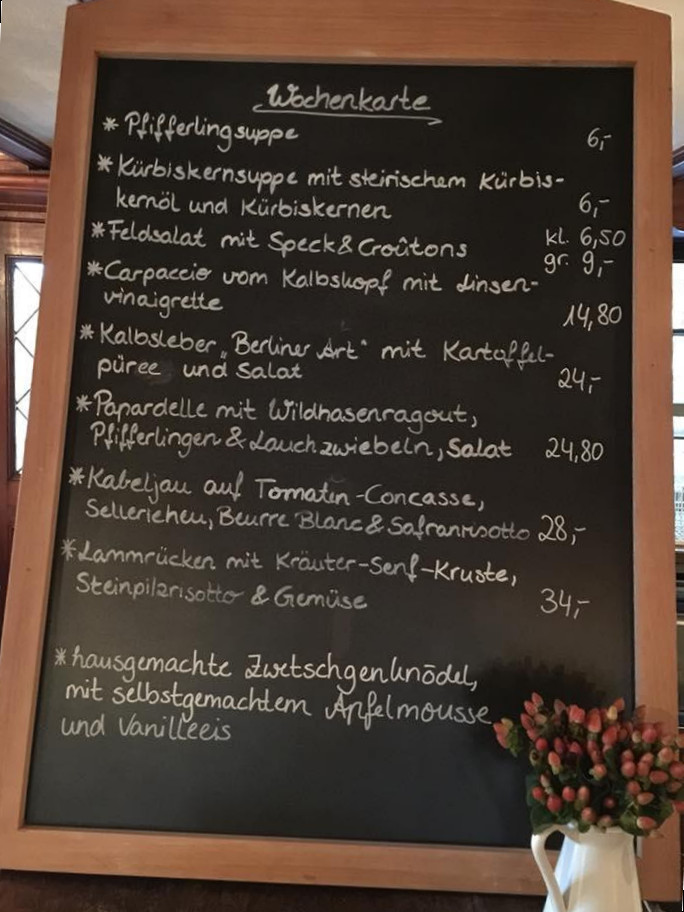 Wochenkarte
* Pfifferlingsuppe 6,-
* Kürbiskernsuppe mit steirischem Kürbis-
kernöl und Kürbiskernen 6,-
* Feldsalat mit Speck & Croûtons kl. 6,50
gr. 9,-
* Carpaccio vom Kalbskopf mit Linsen-
vinaigrette 14,80
* Kalbsleber „Berliner Art" mit Kartoffel-
püree und Salat 24,-
* Papardelle mit Wildhasenragout,
Pfifferlingen & Lauchzwiebeln, Salat 24,80
* Kabeljau auf Tomaten-Concasse,
Sellerieheu, Beurre Blanc & Safranrisotto 28,-
* Lammrücken mit Kräuter-Senf-Kruste,
Steinpilzrisotto & Gemüse 34,-
* hausgemachte Zwetschgenknödel,
mit selbstgemachtem Apfelmousse
und Vanilleeis